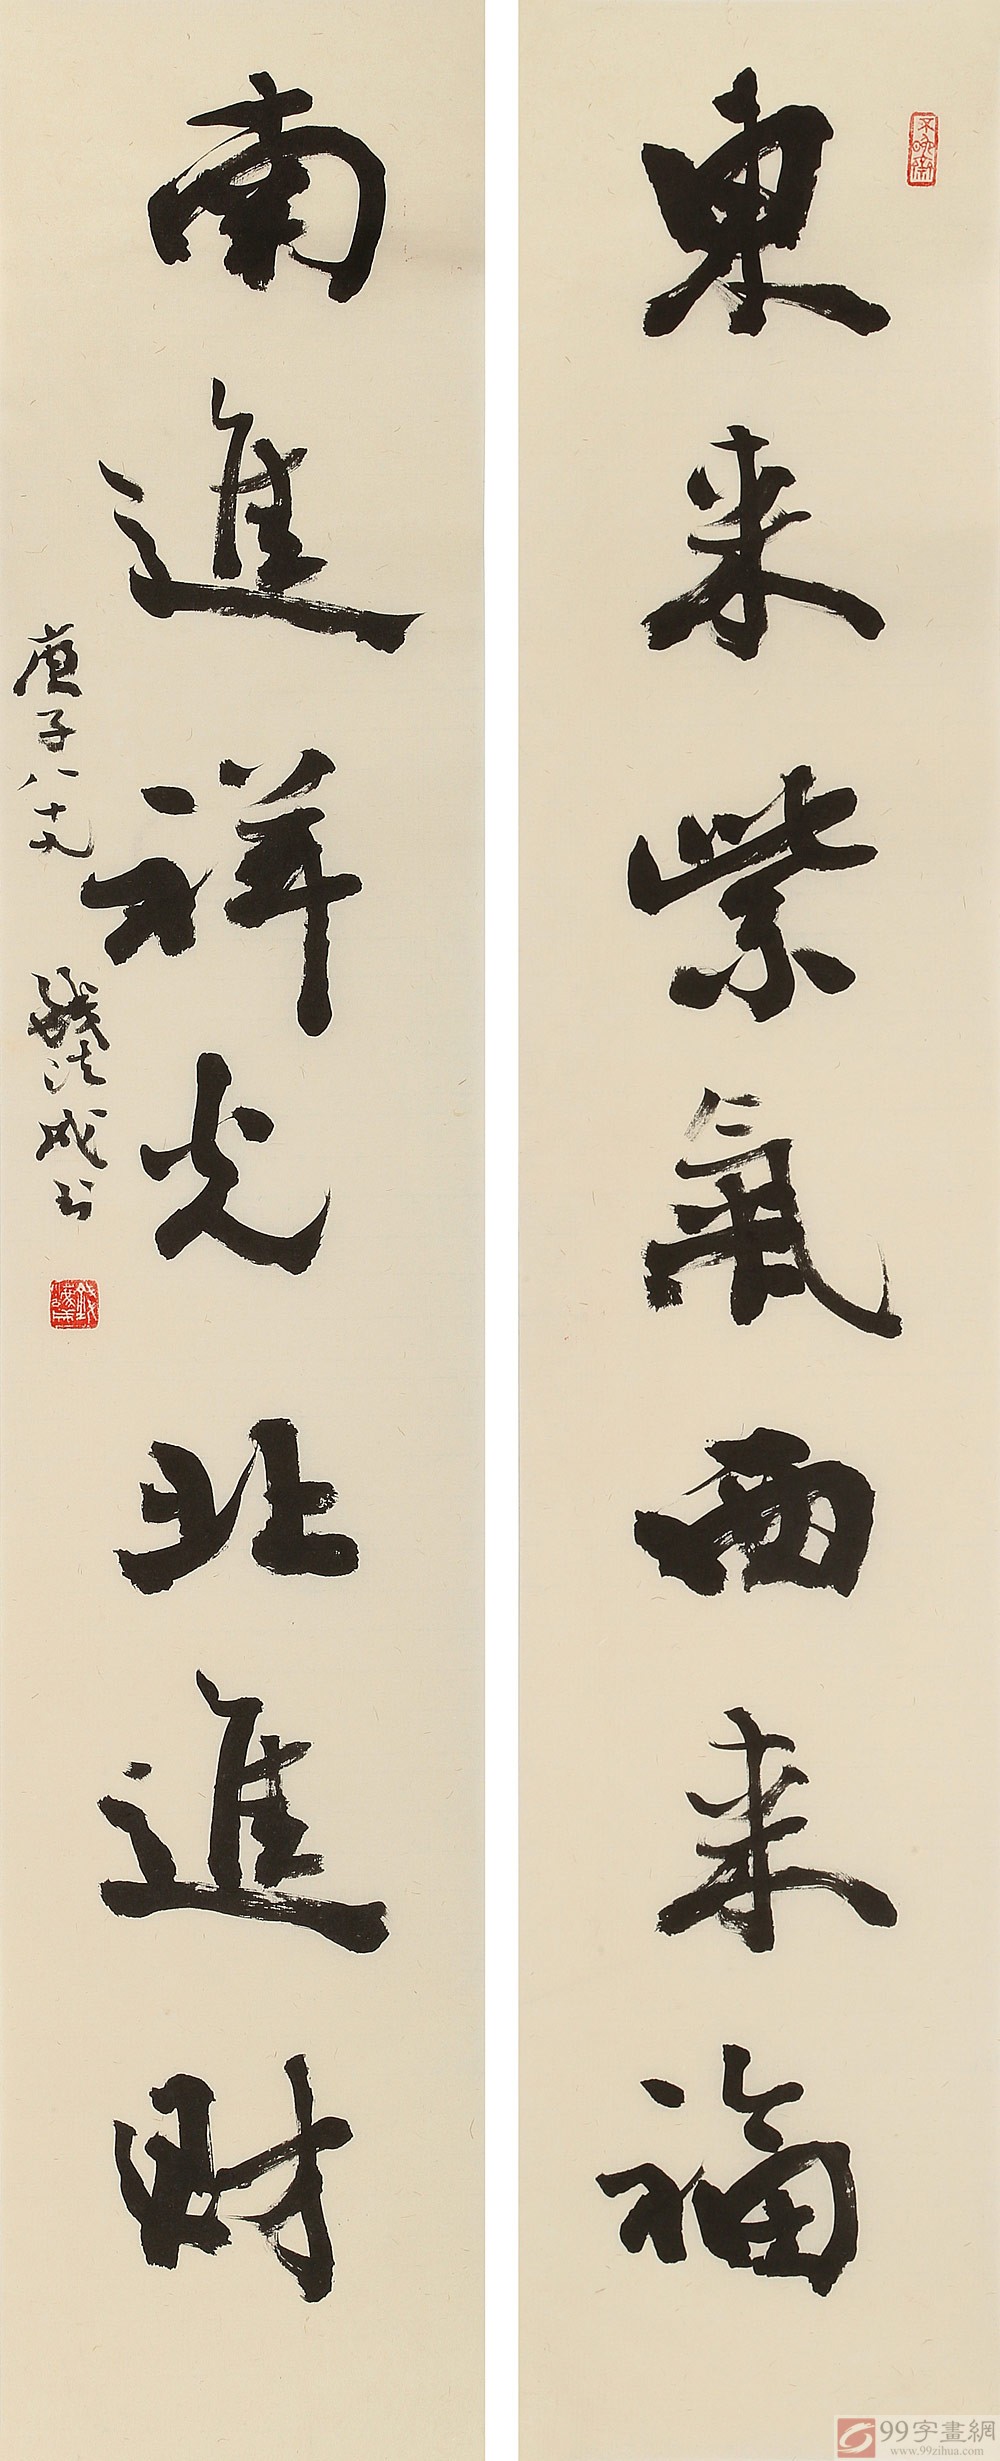 東来紫氣西来福
南進祥光北進財
庚子八十九
錢法成书
99字畫網
www.99zihua.com